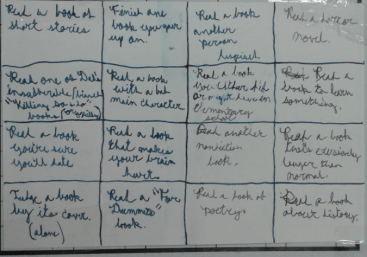 Read a book of
short stories
Finish one
book you gave
up on.
Read a book
another
person
hugised
Read a horror
novel.
Read one of Dell's
innumerable
"Killing
books
Read a book
with a bad
main character
Read a book
you either did
or might have in
elementary
school
Read a
book to learn
something.
Read a book
you're sure
you'll hate
Read a book
that makes
your brain
hurt
Read another
nonfiction
book.
Read a book
that's
longer than
normal.
Judge a book
by its cover.
(alone)
Read a "For
Dummies"
book.
Read a book of
poetry
Read a book
about history.